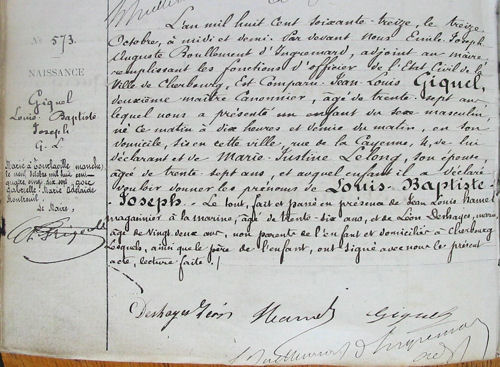 N° 573.
NAISSANCE
Giquel
Louis Baptiste
Joseph
G. L
Marié à Tourlaville manche
le neuf mil huit cent
quatre vingt dix sept avec
Gabrielle Marie Adélaïde
Le Maire,
L'an mil huit cent soixante-treize, le treize
Octobre, à midi et demi. Par devant Nous Emile Joseph
Auguste Boullement d'Ingremard, adjoint au maire,
remplissant les fonctions d'officier de l'Etat Civil de la
Ville de Cherbourg, Est Comparu Jean Louis Giquel,
deuxième maître Canonnier, âgé de trente sept ans,
lequel nous a présenté un enfant du sexe masculin,
né ce matin à dix heures et demie du matin, en son
domicile, sis en cette ville, rue de la Cayenne, 4, de lui
déclarant et de Marie Justine Lelong, son épouse,
âgée de trente sept ans, et auquel enfant il a déclaré
vouloir donner les prénoms de Louis-Baptiste-
Joseph. Le tout, fait et passé en présence de Jean Louis Hamel
magasinier à la marine, âgé de trente-six ans, et de Léon Deshayes,
âgé de vingt deux ans, non parents de l'enfant et domiciliés à Cherbourg
Lesquels, ainsi que le père de l'enfant, ont signé avec nous le présent
acte, lecture faite. /
Deshayes Léon Hamel Giquel
Boullement d'Ingremard